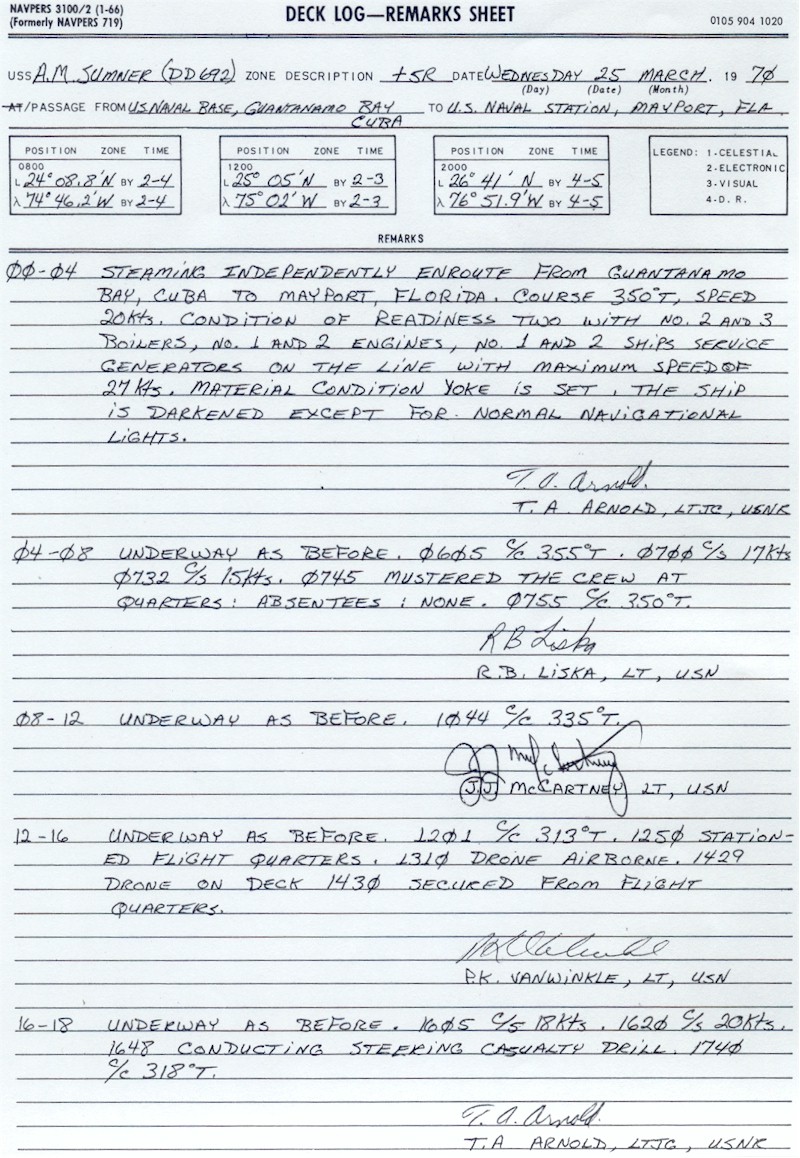 NAVPERS 3100/2 (1-66)
(Formerly NAVPERS 719)
DECK LOG—REMARKS SHEET
0105 904 1020
USS A.M. SUMNER (DD692) ZONE DESCRIPTION +5R DATE WEDNESDAY 25 MARCH. 19 70
(Day) (Date) (Month)
AT/PASSAGE FROM U.S. NAVAL BASE, GUANTANAMO BAY TO U.S. NAVAL STATION, MAYPORT, FLA
CUBA
POSITION ZONE TIME
0800
L 24° 08.8'N BY 2-4
λ 74° 46.2'W BY 2-4
POSITION ZONE TIME
1200
L 25° 05'N BY 2-3
λ 75° 02'W BY 2-3
POSITION ZONE TIME
2000
L 26° 41' N BY 4-5
λ 76° 51.9'W BY 4-5
LEGEND: 1-CELESTIAL
2-ELECTRONIC
3-VISUAL
4-D. R.
REMARKS
ØØ-Ø4 STEAMING INDEPENDENTLY ENROUTE FROM GUANTANAMO
BAY, CUBA TO MAYPORT, FLORIDA. COURSE 35Ø°T, SPEED
2ØKts. CONDITION OF READINESS TWO WITH NO. 2 AND 3
BOILERS, NO. 1 AND 2 ENGINES, NO. 1 AND 2 SHIPS SERVICE
GENERATORS ON THE LINE WITH MAXIMUM SPEED OF
27Kts. MATERIAL CONDITION YOKE IS SET, THE SHIP
IS DARKENED EXCEPT FOR NORMAL NAVIGATIONAL
LIGHTS.
T. A. Arnold.
T. A. ARNOLD, LTJG, USNR
Ø4-Ø8 UNDERWAY AS BEFORE. Ø6Ø5 C/C 355°T. Ø7ØØ C/S 17Kts
Ø732 C/S 15Kts. Ø745 MUSTERED THE CREW AT
QUARTERS: ABSENTEES: NONE. Ø755 C/C 35Ø°T.
R B Liska
R.B. LISKA, LT, USN
Ø8-12 UNDERWAY AS BEFORE. 1Ø44 C/C 335°T.
JJ McCartney
J.J. McCARTNEY LT, USN
12-16 UNDERWAY AS BEFORE. 12Ø1 C/C 313°T. 125Ø STATION-
ED FLIGHT QUARTERS. 131Ø DRONE AIRBORNE. 1429
DRONE ON DECK 143Ø SECURED FROM FLIGHT
QUARTERS.
P.K. VANWINKLE, LT, USN
16-18 UNDERWAY AS BEFORE. 16Ø5 C/S 18Kts. 162Ø C/S 2ØKts.
1648 CONDUCTING STEERING CASUALTY DRILL. 174Ø
C/C 318°T.
T. A. Arnold.
T.A ARNOLD, LTJG, USNR